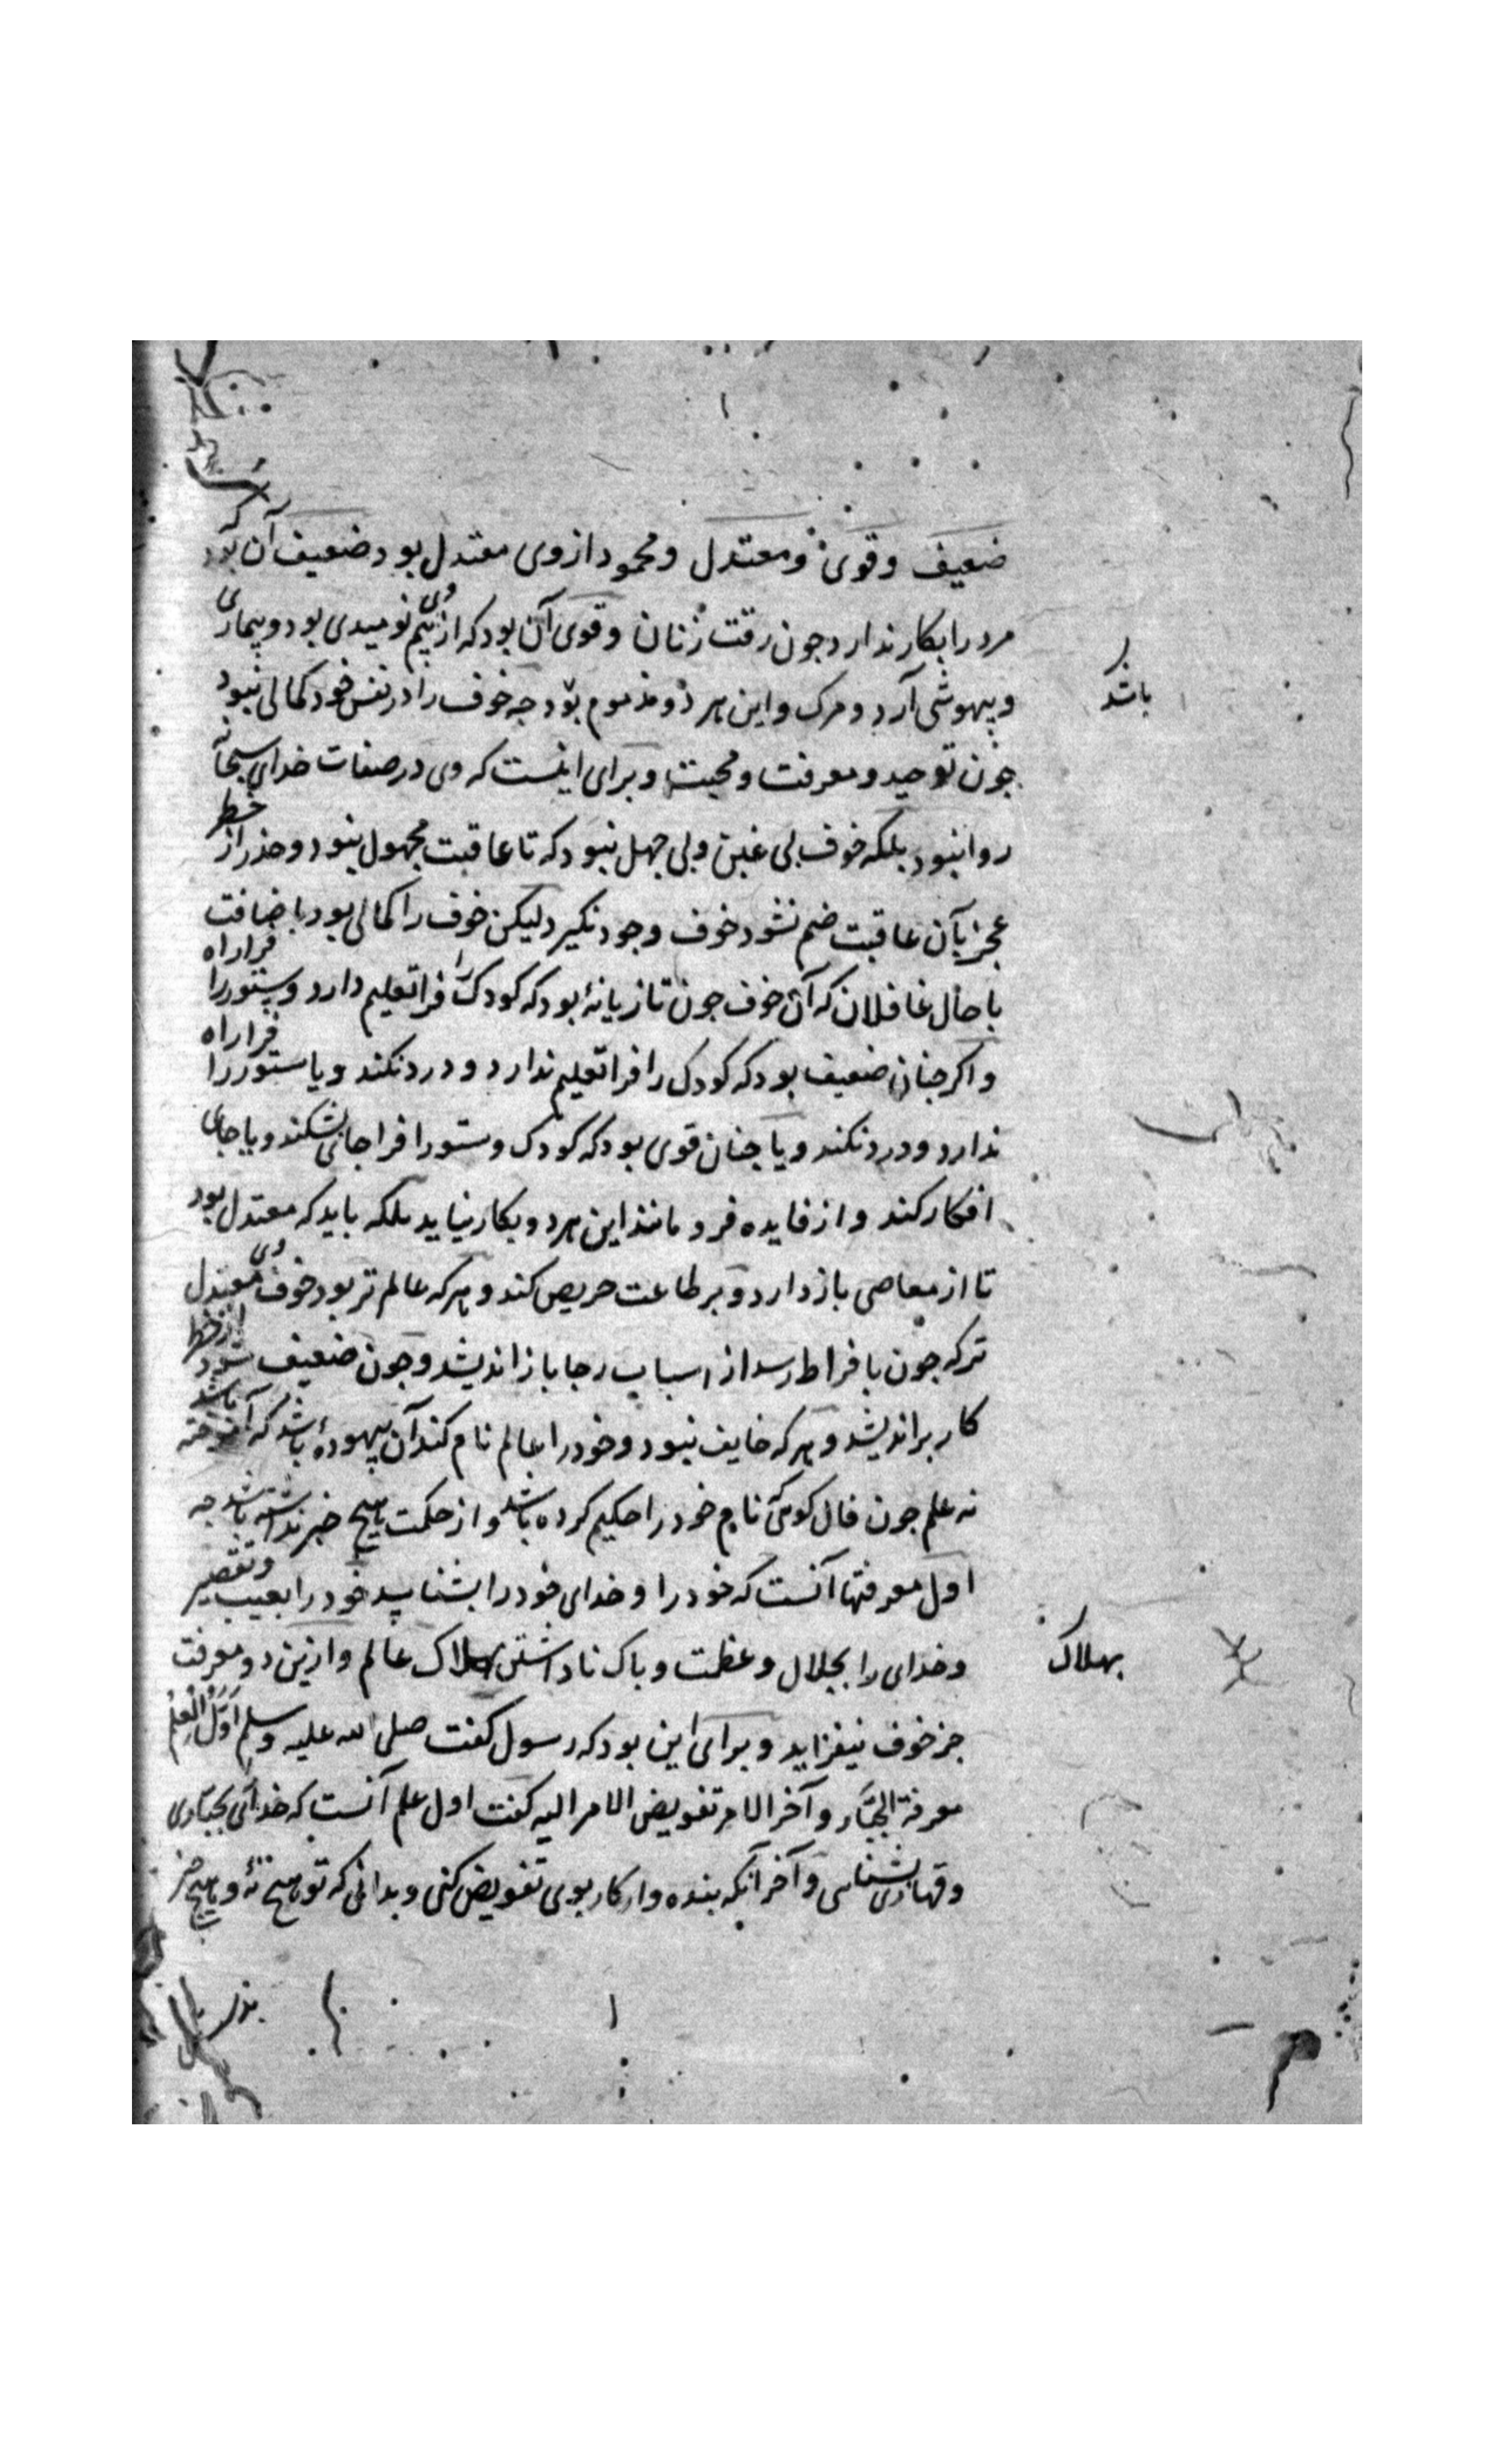 ضعیف وقوی ومعتدل ومحمود ازوی معتدل بود ضعیف آن بود که
مرد را بکار ندارد جون رقت زنان وقوی آن بود که از وی بیم نومیدی بود وبیماری
وبیهوشی آرد ومرک واین هر دو مذموم بود جه خوف را در نفس خود کمالی نبود
جون توحید ومعرفت ومحبت وبرای اینست که وی در صفات خدای سبحانه
روا نبود بلکه خوف بی غبن وبی جهل نبود که تا عاقبت مجهول نبود وحذر از خطر
عجز بآن عاقبت ضم نشود خوف وجود نکیرد لیکن خوف را کمالی بود باضافت
با حال غافلان که آن خوف جون تازیانهٔ بود که کودک را فرا تعلیم دارد وستور را فرا راه
واکر جنان ضعیف بود که کودک را فرا تعلیم ندارد ودرد نکند ویا ستور را فرا راه
ندارد ودرد نکند ویا جنان قوی بود که کودک وستور را فرا جائی بشکند ویا جای
افکار کند واز فایده فرو مانند این هر دو بکار نیاید بلکه باید که معتدل بود
تا از معاصی باز دارد وبر طاعت حریص کند وهرکه عالم تر بود خوف وی معتدل
تر که جون بافراط رسد از اسباب رجا باز اندیشد وجون ضعیف شود از خطر
کار بر اندیشد وهرکه خایف نبود وخود را عالم نام کند آن بیهودهٔ باشد که آموخته باشد
نه علم جون فال کوی که نام خود را حکیم کرده باشد واز حکمت هیچ خبر نداشته باشد جه
اول معرفتها آنست که خود را وخدای خود را بشناسد خود را بعیب وتقصیر
وخدای را بجلال وعظمت وباک ناداشتن بهلاک عالم وازین دو معرفت
جز خوف نیفزاید وبرای این بود که رسول کفت صلی الله علیه وسلم اَوَّلُ الْعِلْمِ
معرفة الجبَّار وآخر الامر تفویض الامر الیه کفت اول علم آنست که خدای بجبّاری
وقهاری بشناسی وآخر آنکه بنده وار کار بوی تفویض کنی وبدانی که تو هیچ نهٔ وهیچ جیز
باشد
بهلاک